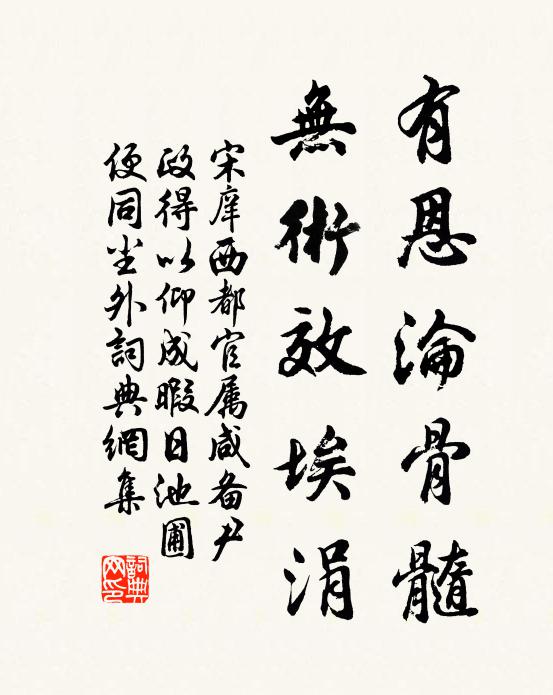 有恩淪骨髓
無術效埃涓
宋庠西都官属咸备尹
政得以仰成暇日池圃
便同尘外詞典網集
詞典网印